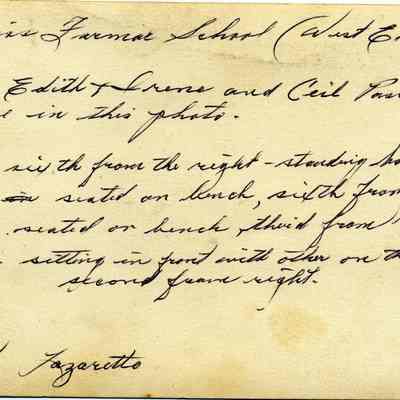 Farmac School (West E
Edith & Irene and Ceil Pas
e in this photo.
sixth from the right - standing ba
in seated on bench, sixth from
seated on bench, third from
sitting in front with other on th
second from right.
Fazaretto